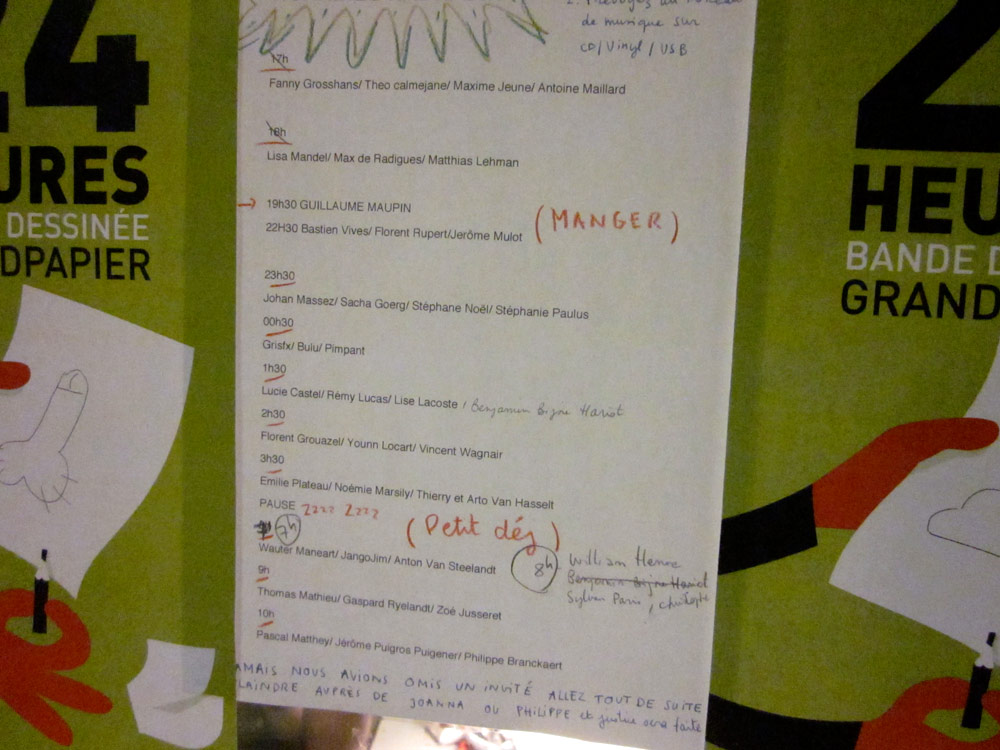 de musique sur
CD/Vinyl/USB
17h
Fanny Grosshans/ Theo calmejane/ Maxime Jeune/ Antoine Maillard
18h
Lisa Mandel/ Max de Radigues/ Matthias Lehman
→ 19h30 GUILLAUME MAUPIN
(MANGER)
22H30 Bastien Vives/ Florent Rupert/Jerôme Mulot
23h30
Johan Massez/ Sacha Goerg/ Stéphane Noël/ Stéphanie Paulus
00h30
Grisfx/ Bulu/ Pimpant
1h30
Lucie Castel/ Rémy Lucas/ Lise Lacoste / Benjamin
2h30
Florent Grouazel/ Younn Locart/ Vincent Wagnair
3h30
Emilie Plateau/ Noémie Marsily/ Thierry et Arto Van Hasselt
PAUSE ZZZZ ZZZZ
(Petit déj)
7h
Wauter Maneart/ JangoJim/ Anton Van Steelandt
8h William Henne
Benjamin
Sylvain Paris,
9h
Thomas Mathieu/ Gaspard Ryelandt/ Zoé Jusseret
10h
Pascal Matthey/ Jérôme Puigros Puigener/ Philippe Branckaert
AMAIS NOUS AVIONS OMIS UN INVITÉ ALLEZ TOUT DE SUITE
LAINDRE AUPRÈS DE JOANNA OU PHILIPPE et justice sera faite
24
URES
DESSINÉE
DPAPIER
2
HEU
BANDE D
GRAND